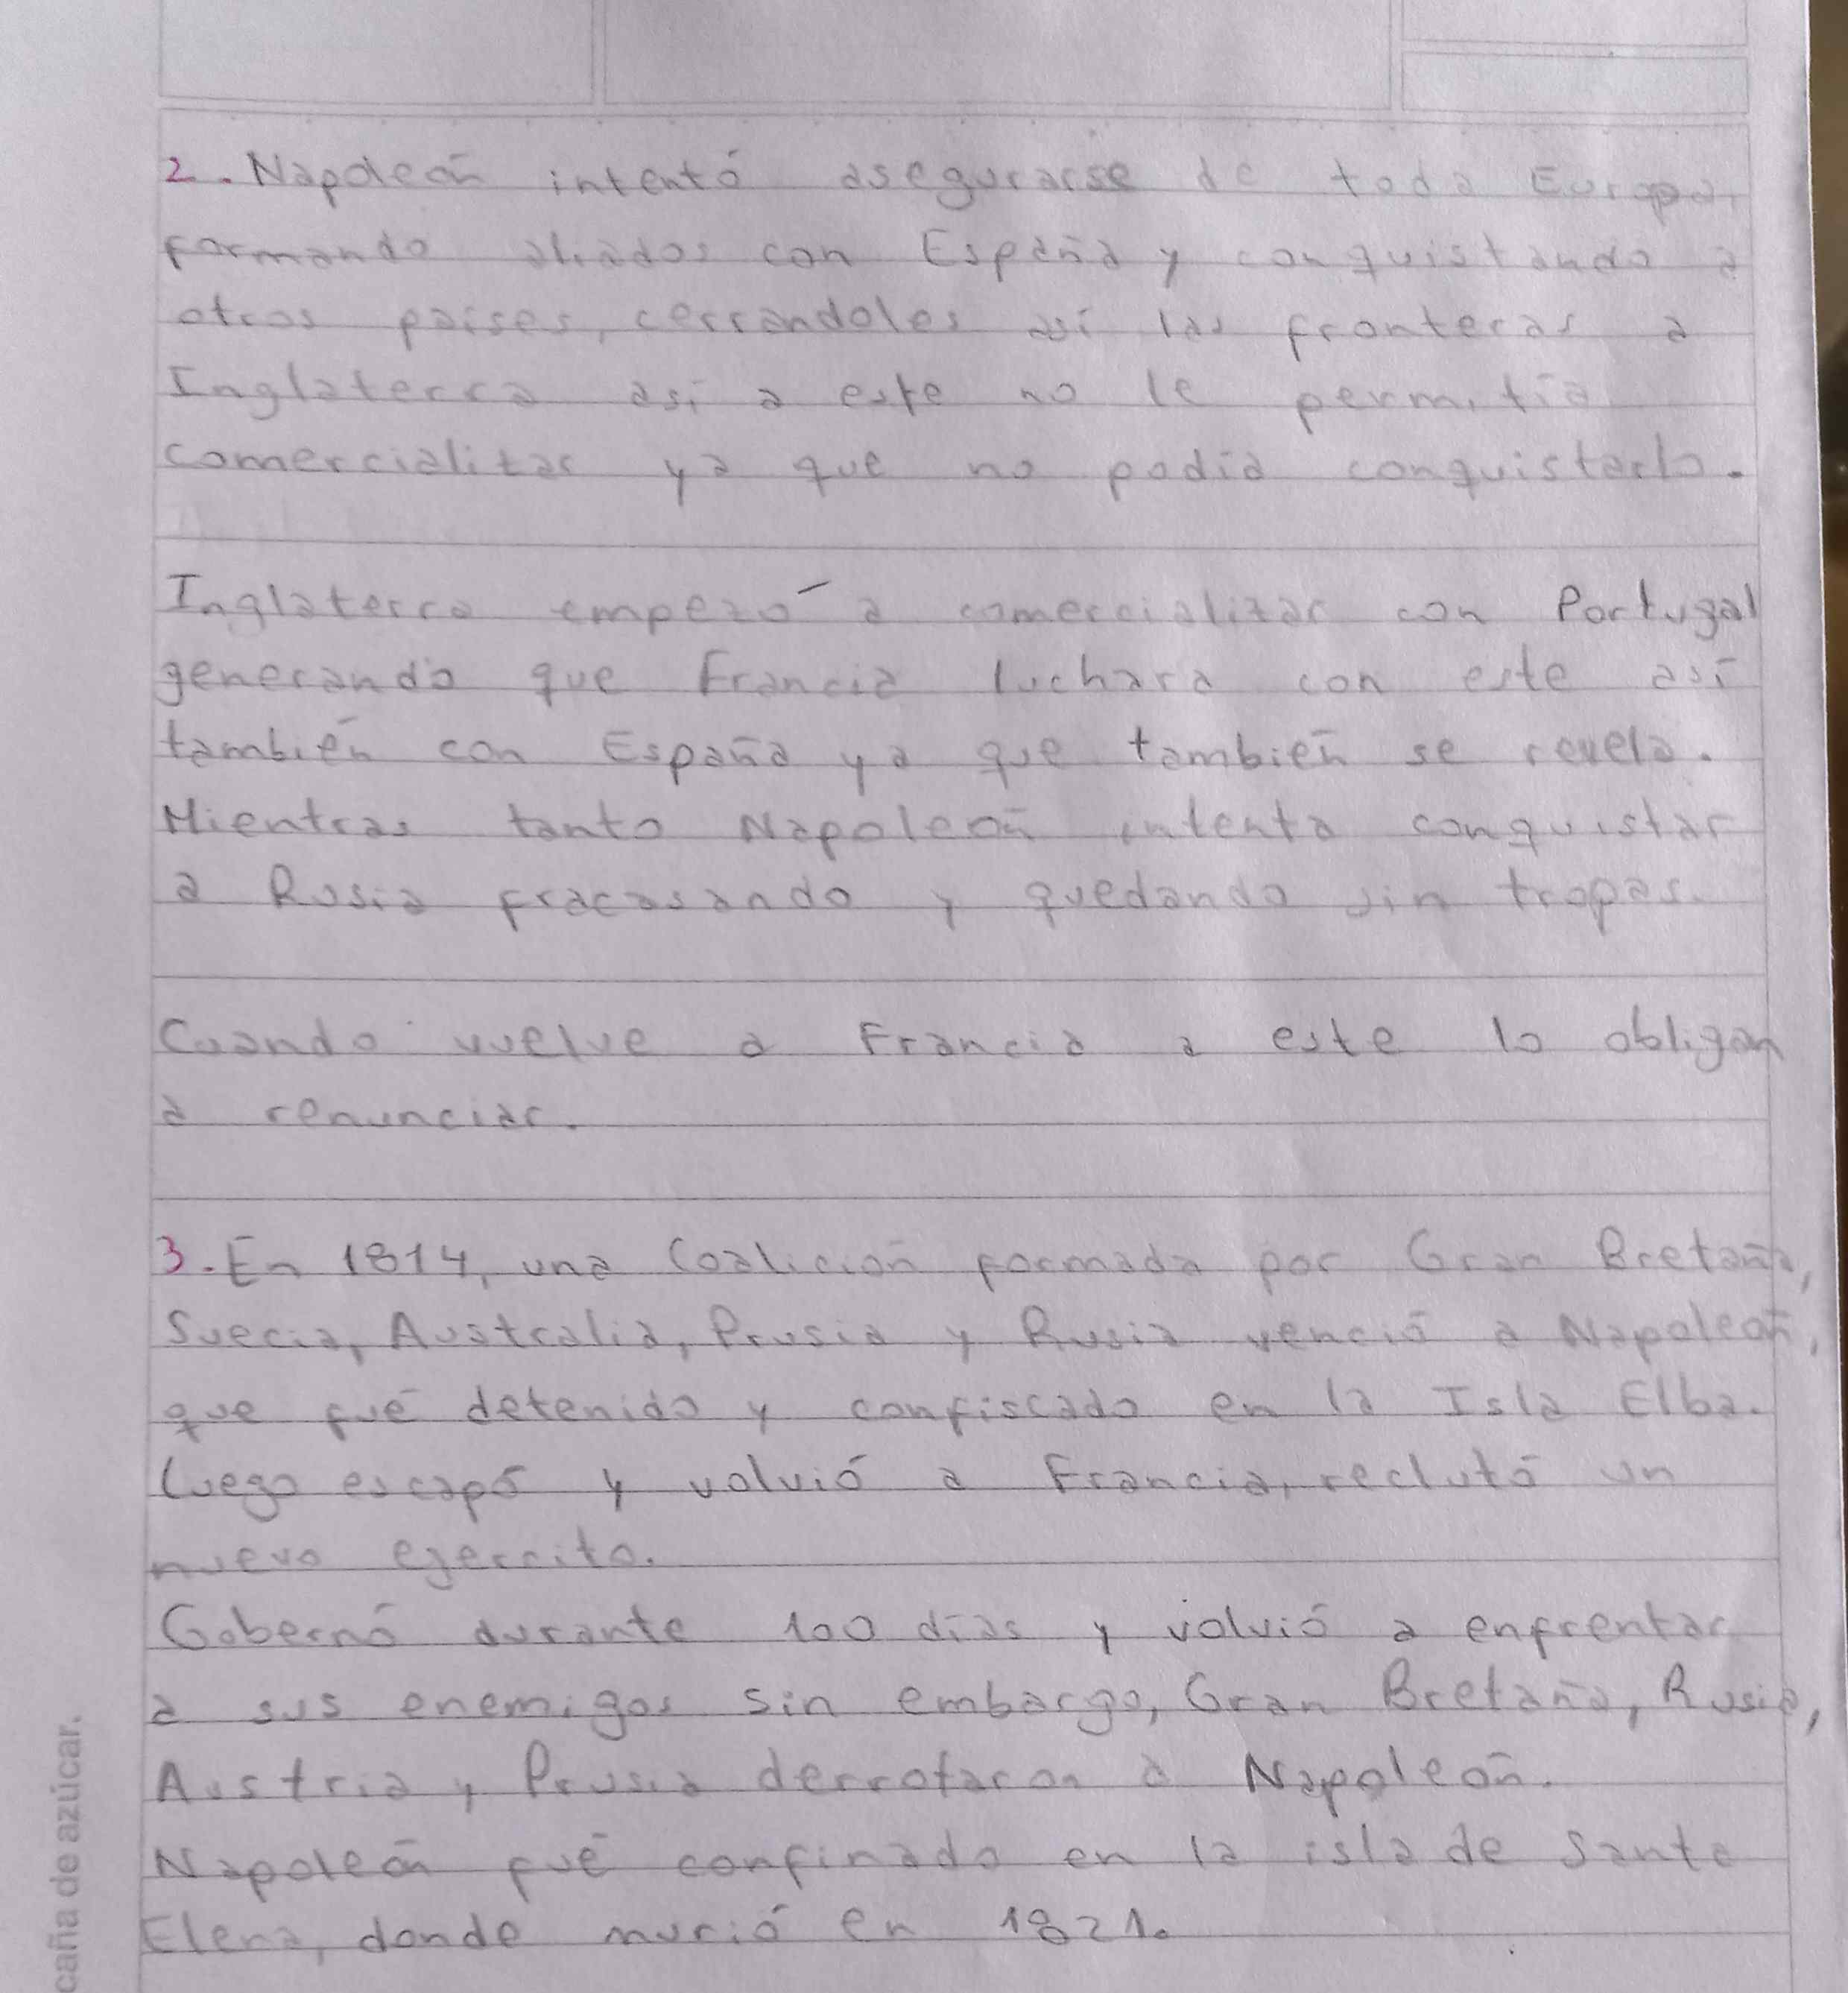 2. Napoleón intentó asegurarse de toda Europa,
formando aliados con España y conquistando a
otros países, cerrandoles así las fronteras a
Inglaterra así a este no le permitía
comercializar ya que no podía conquistarlo.
Inglaterra empezó a comercializar con Portugal
generando que Francia luchara con este así
también con España ya que también se revela.
Mientras tanto Napoleón intenta conquistar
a Rusia fracasando y quedando sin tropas.
Cuando vuelve a Francia a este lo obligan
a renunciar.
3. En 1814, una Coalición formada por Gran Bretaña,
Suecia, Australia, Prusia y Rusia venció a Napoleón,
que fué detenido y confiscado en la Isla Elba.
Luego escapó y volvió a Francia, reclutó un
nuevo ejercito.
Gobernó durante 100 días y volvió a enfrentar
a sus enemigos sin embargo, Gran Bretaña, Rusia,
Austria y Prusia derrotaron a Napoleón.
Napoleón fué confinado en la isla de Santa
Elena, donde murió en 1821.
caña de azúcar.